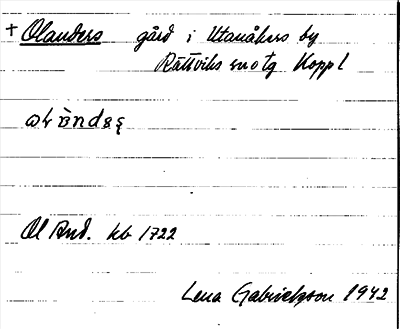 + Olanders gård i Utanåkers by
Rättviks sn o tg Kopp l
Ol And. kb 1722
Lena Gabrielsson 1942